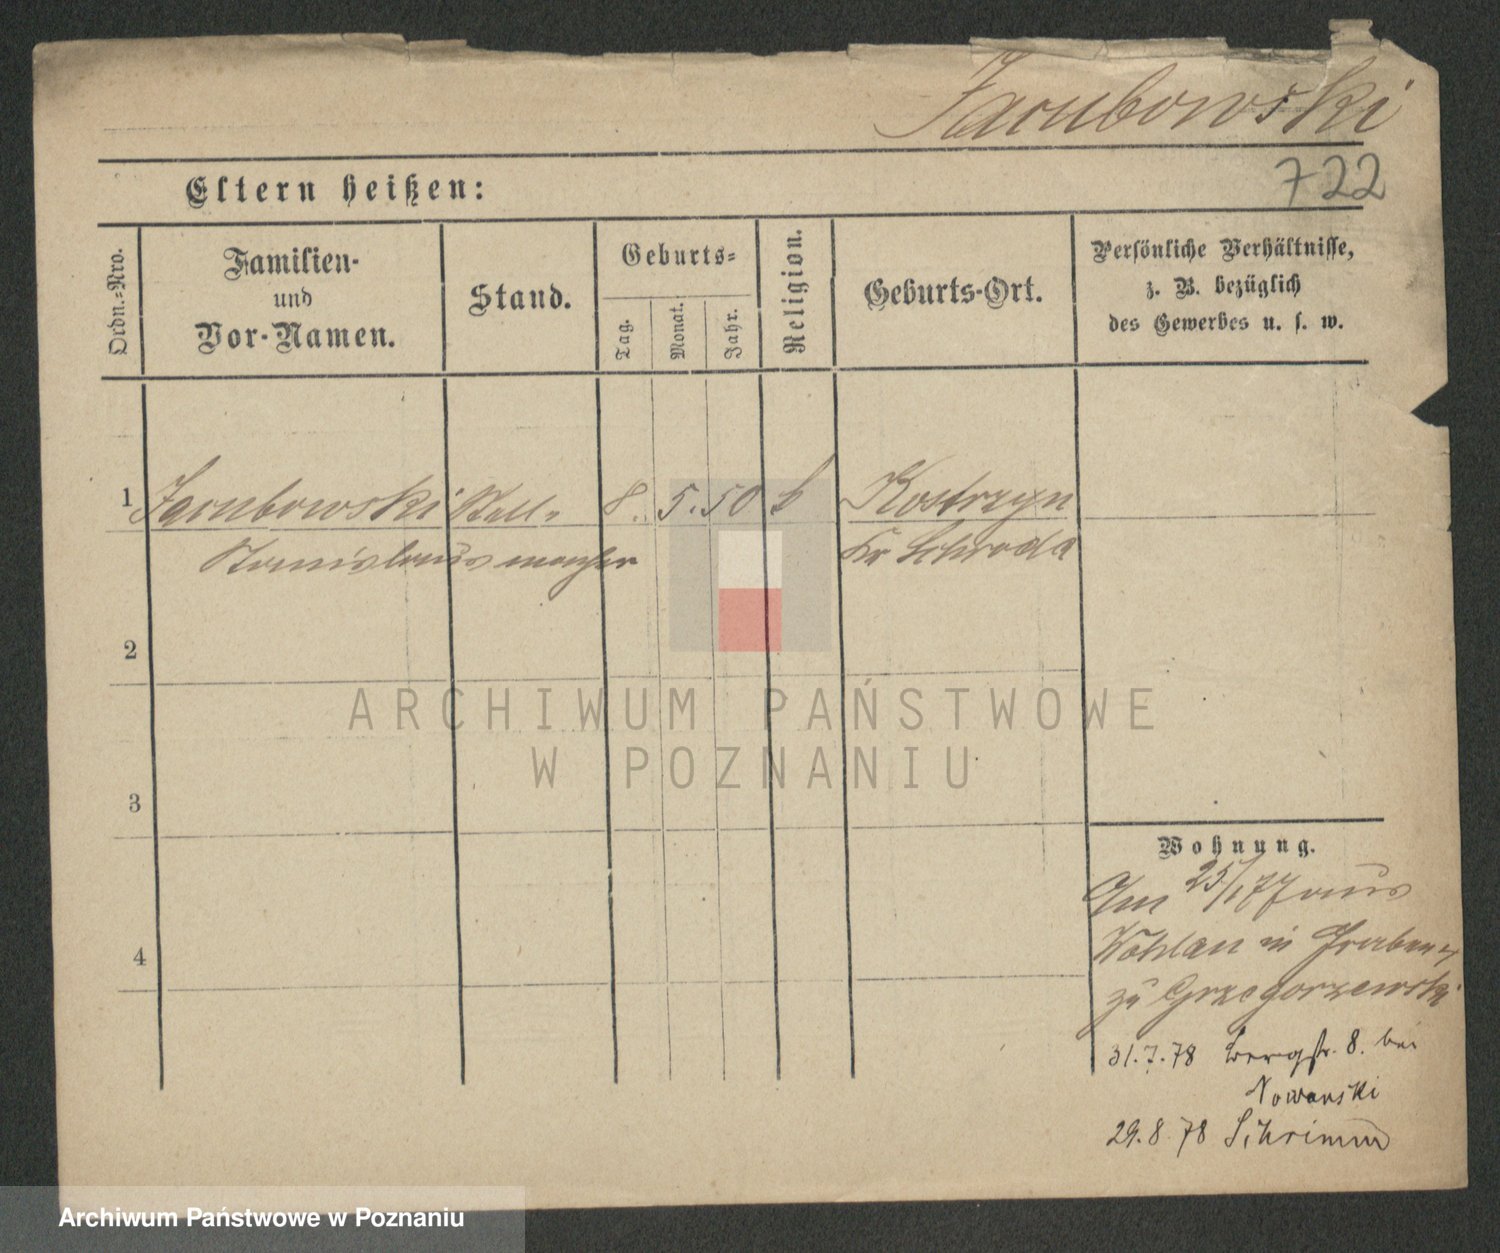 Jacubowski
722
Eltern heißen:
Ordn.-Nro.
Familien-
und
Vor-Namen.
Stand.
Geburts-
Tag.
Monat.
Jahr.
Religion.
Geburts-Ort.
Persönliche Verhältnisse,
z. B. bezüglich
des Gewerbes u. s. w.
1 Jacubowski Stell- 8. 5. 50 k Kostrzyn
Stanislaus macher Kr Schroda
2
3
4
ARCHIWUM PAŃSTWOWE
W POZNANIU
Wohnung.
Am 25/1 77 aus
Wohlau in Graben
zu Grzegorzewski
31.7.78 Bergstr. 8. bei
Nowanski
29.8.78 Schrimm
Archiwum Państwowe w Poznaniu